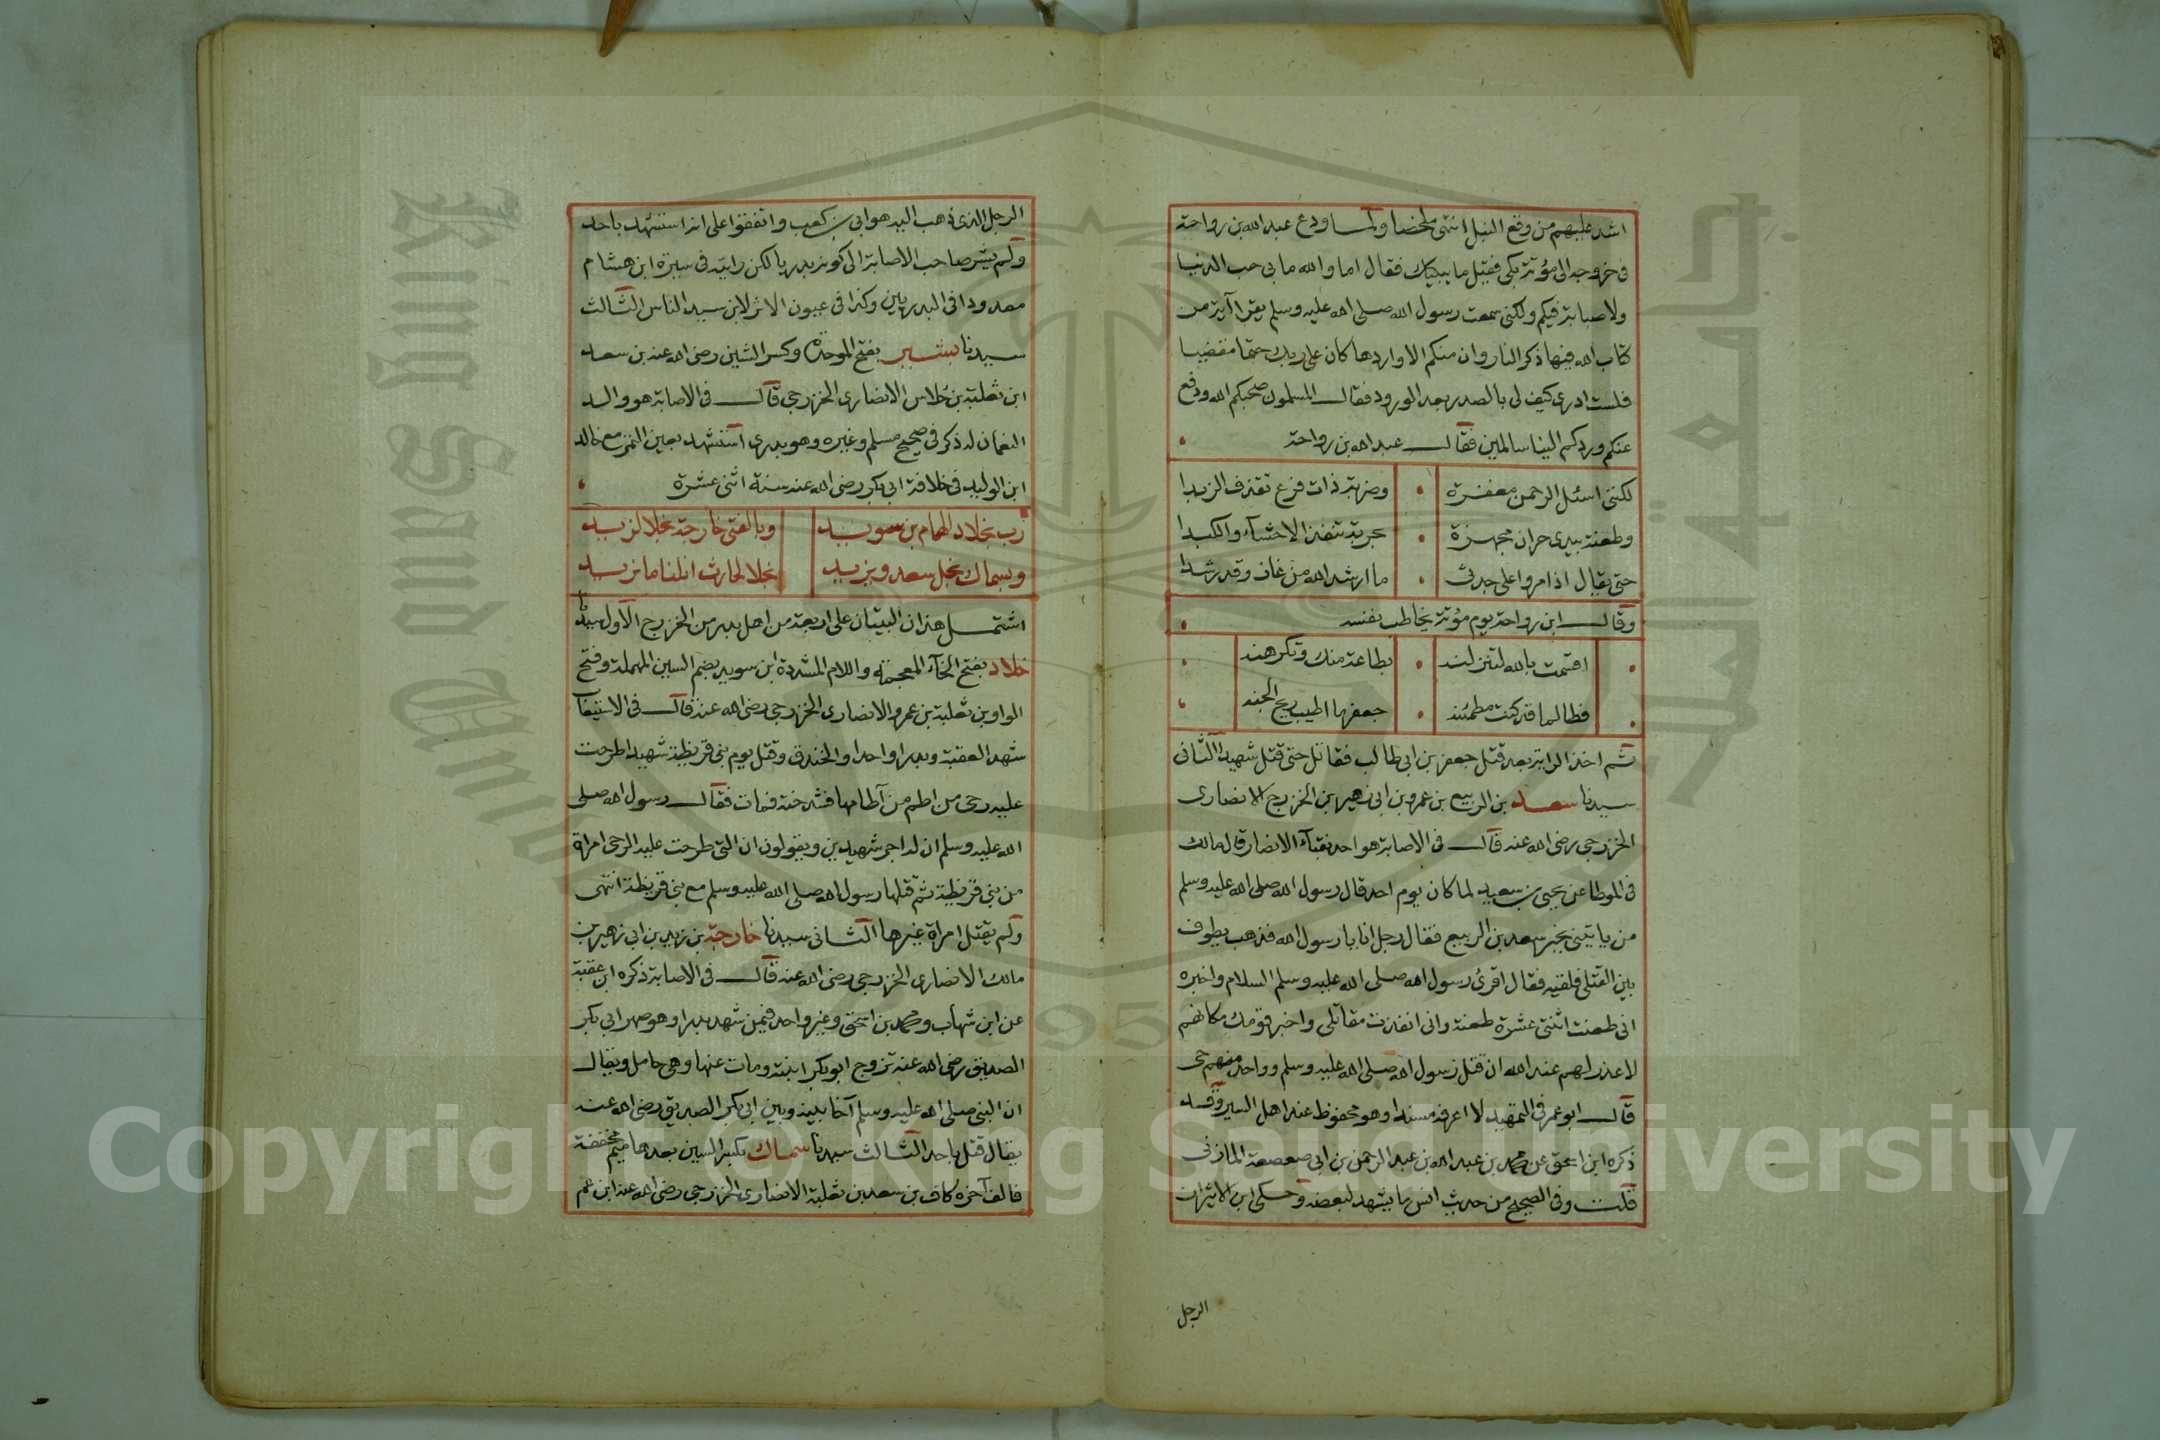 اشد عليهم من وقع النبل انتهى ملخصا ولما ودع عبد الله بن رواحة
في خروجه الى مؤتة بكى فقيل ما يبكيك فقال اما والله ما بي حب الدنيا
ولا صبابة فيكم ولكني سمعت رسول الله صلى الله عليه وسلم يقرا آية من
كتاب الله فيها ذكر النار وان منكم الا واردها كان على ربك حتما مقضيا
فلست ادري كيف لي بالصدر بعد الورود فقال المسلمون صحبكم الله ودفع
عنكم وردكم الينا سالمين فقال عبد الله بن رواحة
لكنني اسئل الرحمن مغفرة وضربة ذات فرع تقذف الزبدا
وطعنة بيدي حران مجهزة بحربة تنفذ الاحشآء والكبدا
حتى يقال اذا مروا على جدثي ما ارشد الله من غاز وقد رشدا
وقال ابن رواحة يوم مؤتة يخاطب نفسه
اقسمت بالله لتنزلنه بطاعة منك وتكرهنه
فطالما قد كنت مطمئنه جعفر ما اطيب ريح الجنه
ثم اخذ الراية بعد قتل جعفر بن ابي طالب فقاتل حتى قتل شهيدا الثاني
سيدنا سعد بن الربيع بن عمرو بن ابي زهير بن الخزرج الانصاري
الخزرجي رضي الله عنه قال في الاصابة هو احد نقبآء الانصار قال مالك
في الموطا عن يحيى بن سعيد لما كان يوم احد قال رسول الله صلى الله عليه وسلم
من ياتيني بخبر سعد بن الربيع فقال رجل انا يا رسول الله فذهب يطوف
بين القتلى فلقيه فقال اقرئ رسول الله صلى الله عليه وسلم السلام واخبره
اني طعنت اثنتي عشرة طعنة واني انفذت مقاتلي واخبر قومك مكانهم
لا عذر لهم عند الله ان قتل رسول الله صلى الله عليه وسلم وواحد منهم حي
قال ابو عمر في التمهيد لا اعرفه مسندا وهو محفوظ عند اهل السير وقد
ذكره ابن اسحق عن محمد بن عبد الله بن عبد الرحمن بن ابي صعصعة المازني
قلت وفي الصحيح من حديث انس ما يشهد لبعضه وحكى ابن الاثير ان
الرجل
الرجل الذي ذهب اليه هو ابي بن كعب واتفقوا على انه استشهد باحد
ولم يشر صاحب الاصابة الى كونه بدريا لكن رايته في سيرة ابن هشام
معدودا في البدريين وكذا في عيون الاثر لابن سيد الناس الثالث
سيدنا بشير بفتح الموحدة وكسر الشين رضي الله عنه بن سعد
ابن ثعلبة بن خلاس الانصاري الخزرجي قال في الاصابة هو والد
النعمان له ذكر في صحيح مسلم وغيره وهو بدري استشهد بعين التمر مع خالد
ابن الوليد في خلافة ابي بكر رضي الله عنه سنة اثني عشرة
رب بخلاد الهمام بن سويد وبالفتى خارجة نجلا لزيد
وبسماك نجل سعد ويزيد نجلا لحارث انلنا ما نريد
اشتمل هذان البيتان على اربعة من اهل بدر من الخزرج الاول سيدنا
خلاد بفتح الخآء المعجمة واللام المشددة ابن سويد بضم السين المهملة وفتح
الواو بن ثعلبة بن عمرو الانصاري الخزرجي رضي الله عنه قال في الاستيعاب
شهد العقبة وبدرا واحدا والخندق وقتل يوم بني قريظة شهيدا طرحت
عليه رحى من اطم من آطامها فشدخته فمات فقال رسول الله صلى
الله عليه وسلم ان له اجر شهيدين ويقولون ان التي طرحت عليه الرحى امراة
من بني قريظة ثم قتلها رسول الله صلى الله عليه وسلم مع بني قريظة انتهى
ولم يقتل امراة غيرها الثاني سيدنا خارجة بن زيد بن ابي زهير بن
مالك الانصاري الخزرجي رضي الله عنه قال في الاصابة ذكره ابن عقبة
عن ابن شهاب ومحمد بن اسحق وغير واحد فيمن شهد بدرا وهو صهر ابي بكر
الصديق رضي الله عنه تزوج ابو بكر ابنته ومات عنها وهي حامل ويقال
ان النبي صلى الله عليه وسلم آخا بينه وبين ابي بكر الصديق رضي الله عنه
يقال قتل باحد الثالث سيدنا سماك بكسر السين بعدها ميم مخففة
فالف آخره كاف بن سعد بن ثعلبة الانصاري الخزرجي رضي الله عنه ابن عم
King Saud University
1957
Copyright © King Saud University